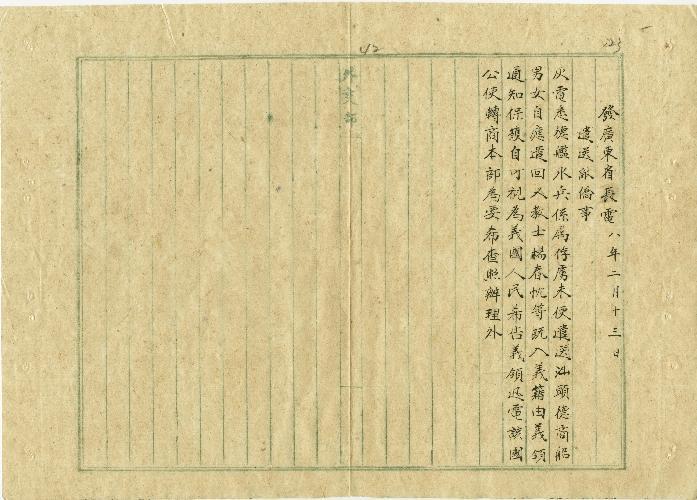 123
42
發廣東省長電 八年二月十三日
遣送敵僑事
灰電悉德艦水兵係屬俘虜未便遣送汕頭德商船
男女自應遣回又教士楊春忱等既入義籍由義領
通知保護自可視為義國人民希告義領迅電該國
公使轉商本部為要希查照辦理外
外交部